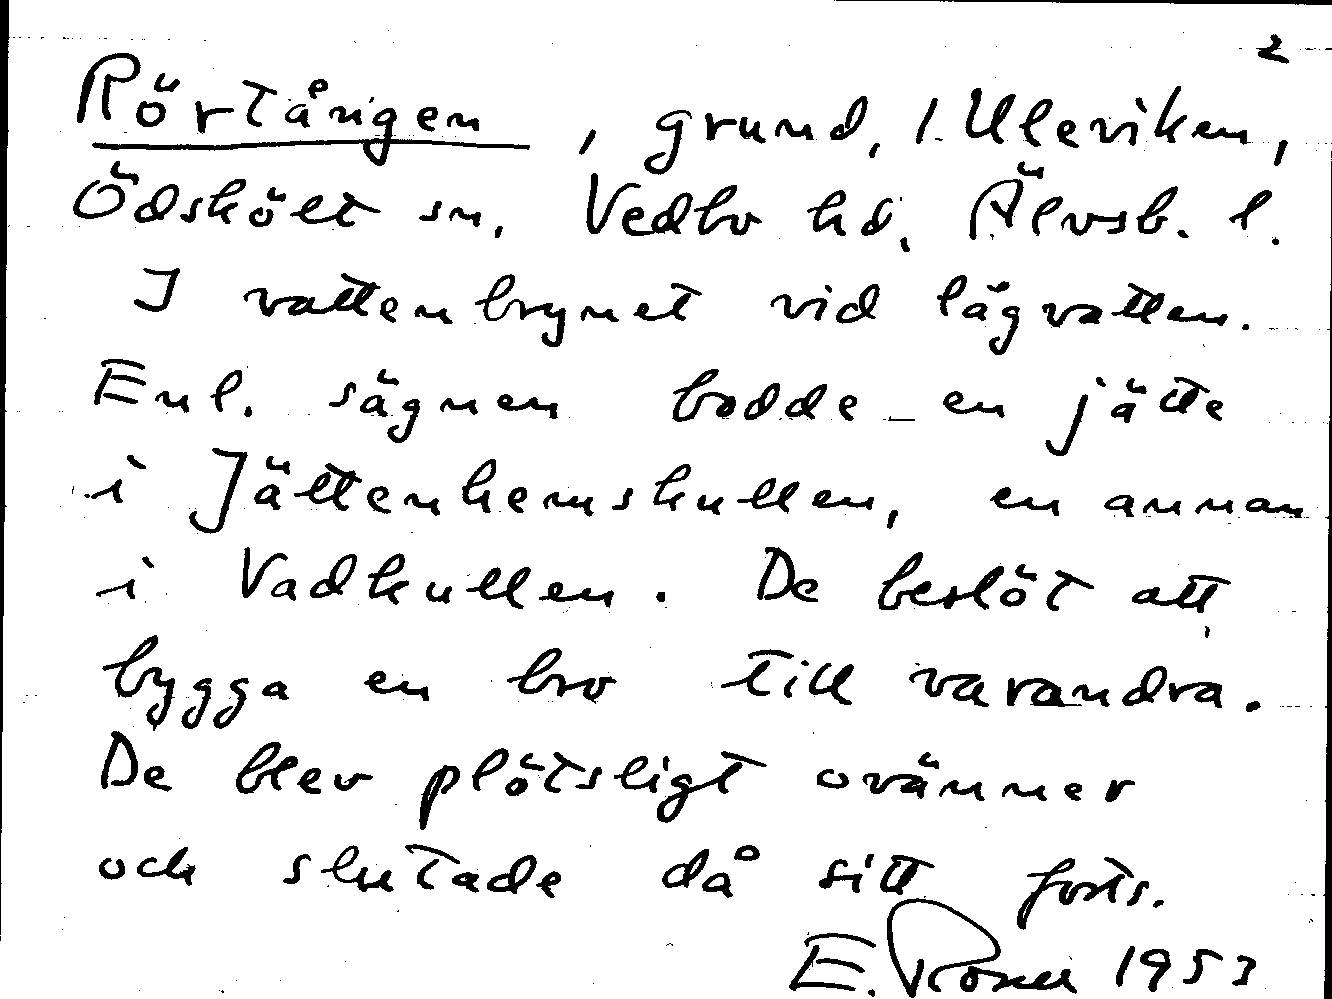 2
Rörtången, grund, i Uleviken,
Ödskölt sn, Vedbo hd, Älvsb. l.
I vattenbrynet vid lågvatten.
Enl. sägnen bodde en jätte
i Jättenhemskullen, en annan
i Vadkullen. De beslöt att
bygga en bro till varandra.
De blev plötsligt ovänner
och slutade då sitt forts.
E. Rosell 1953